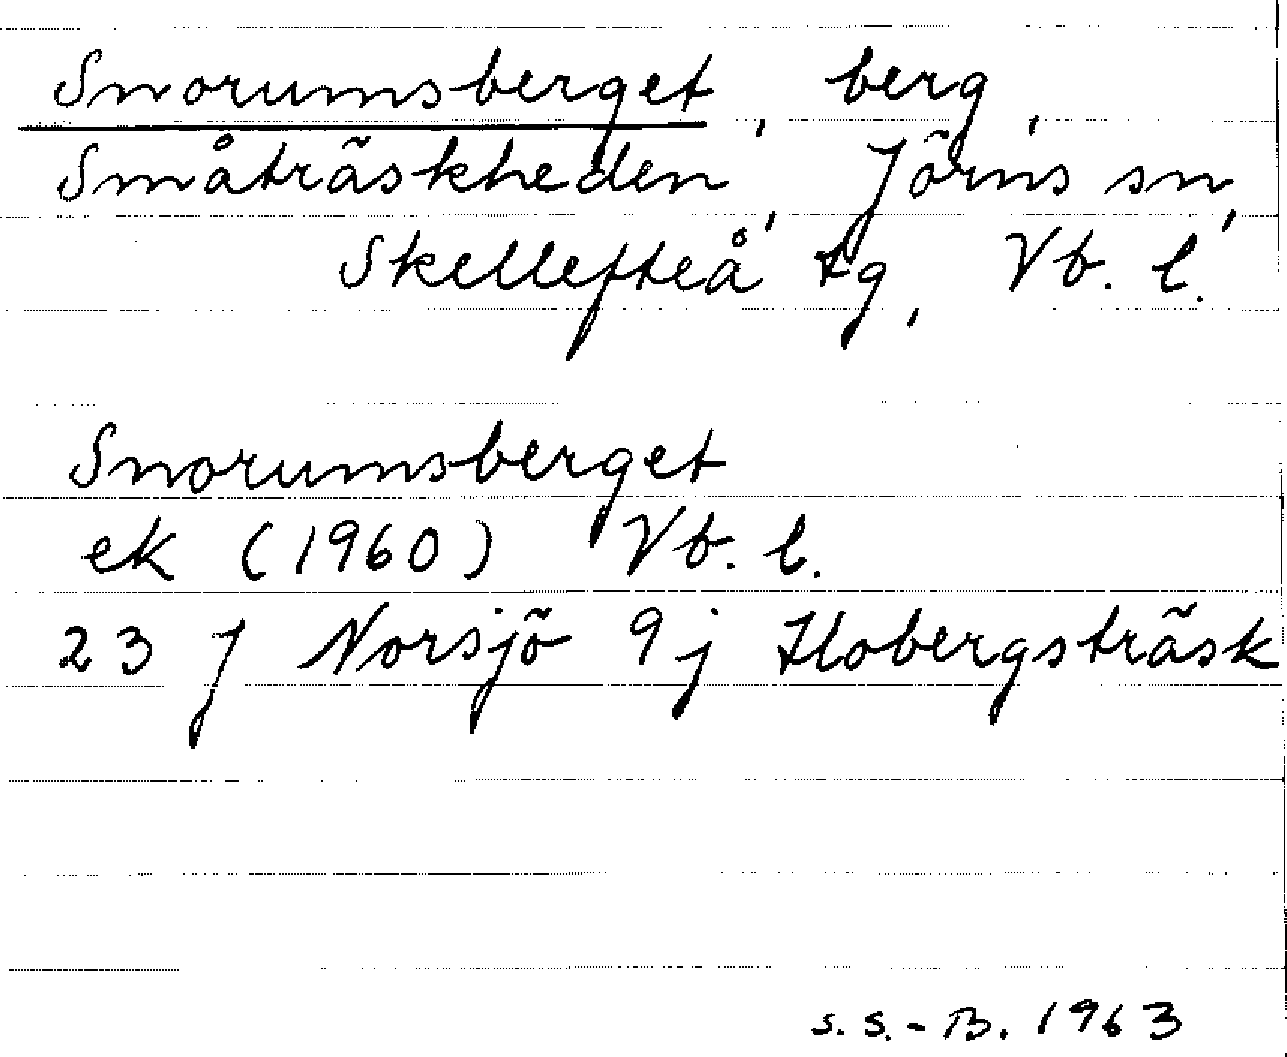 Snorumsberget, berg,
Småträskheden, Jörns sn,
Skellefteå tg, Vb. l.
Snorumsberget
ek (1960) Vb. l.
23 J Norsjö 9j Hobergsträsk
S. S.-B. 1963